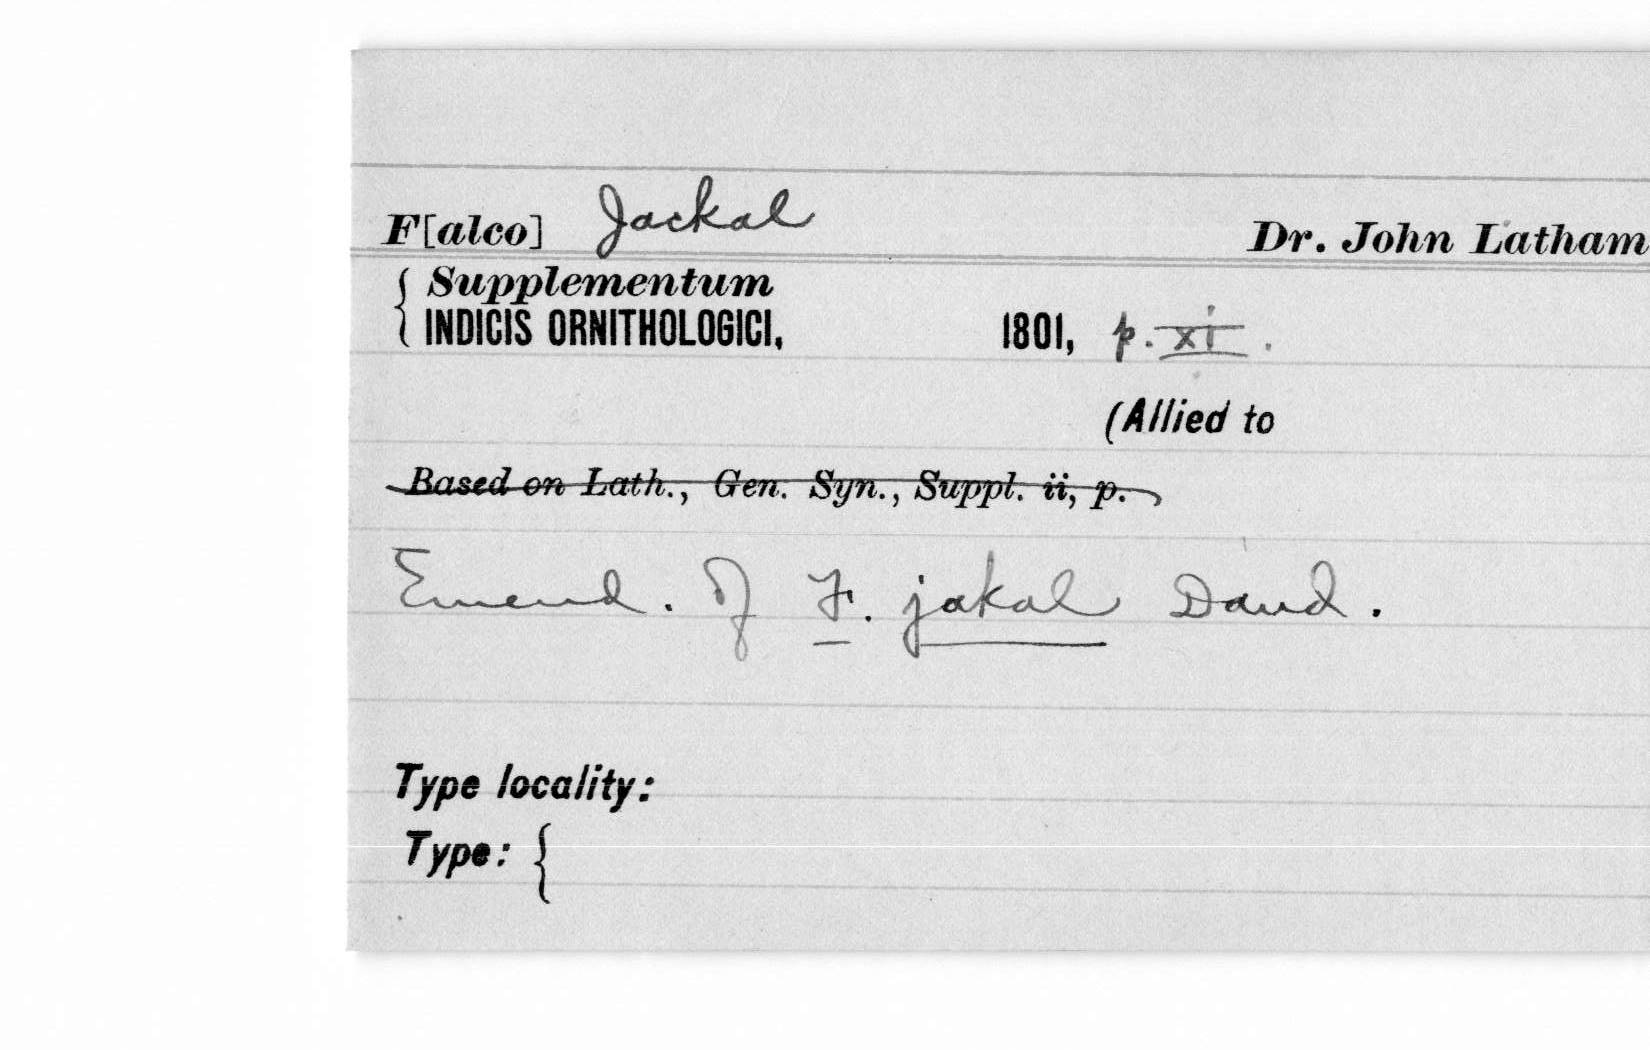 F[alco] Jackal Dr. John Latham
Supplementum
INDICIS ORNITHOLOGICI, 1801, p. xi.
(Allied to
Based on Lath., Gen. Syn., Suppl. ii, p.
Emend. of F. jakal Daud.
Type locality:
Type: